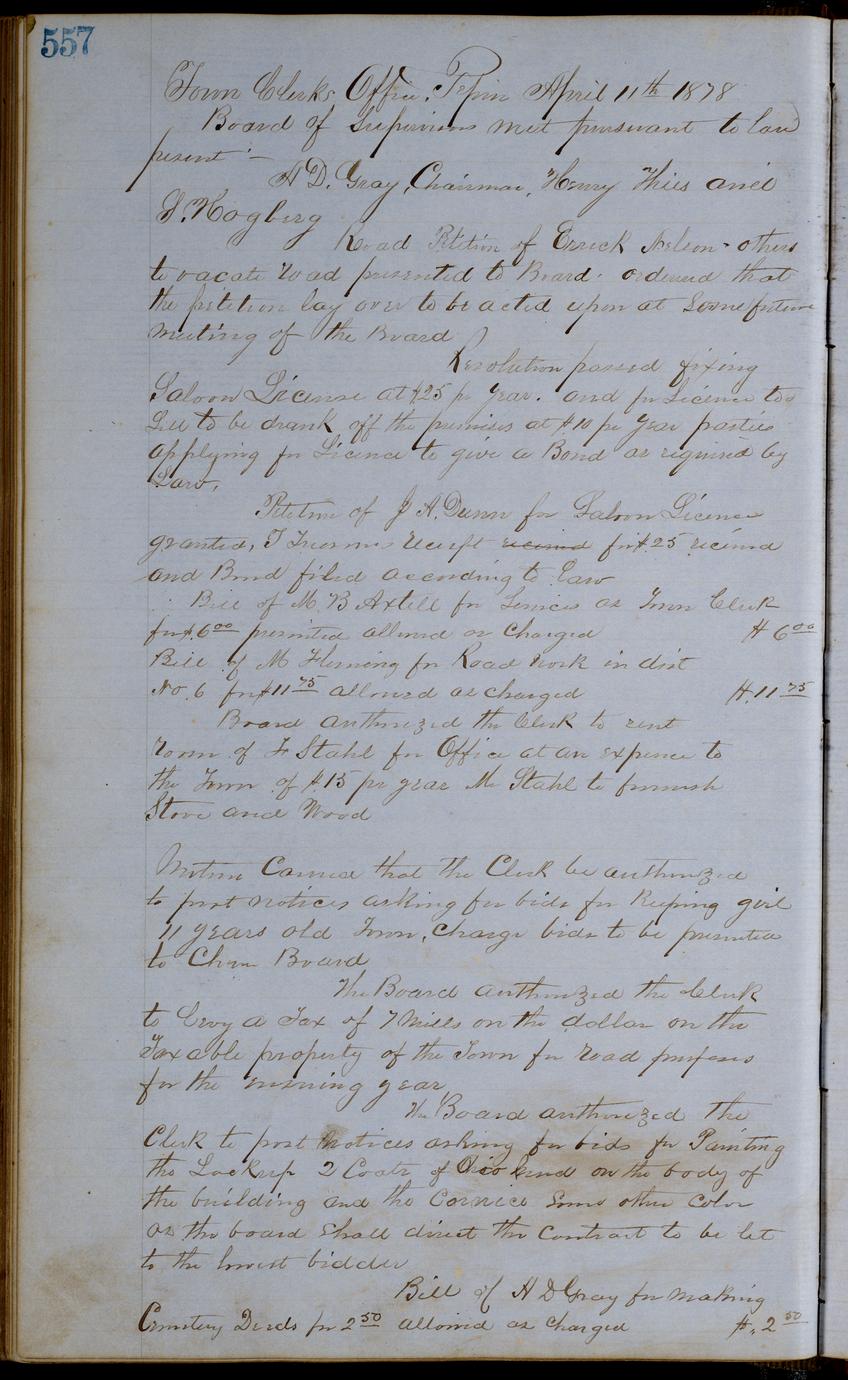 557
Town Clerks Office, Pepin April 11th 1878
Board of Supervisors met pursuant to law
present :-
H D. Gray, Chairman, Henry Thies and
S. Hogberg
Road Petition of Errick Nelson - others
to vacate road presented to Board. ordered that
the petition lay over to be acted upon at some future
meeting of the Board
Resolution passed fixing
Saloon License at $25 pr year. and for Licence to
to be drank off the premises at $10 pr year parties
applying for Licence to give a Bond as required by
Law.
Petition of J A. Dunn for Saloon Licence
granted, Receipt received for $25 received
and Bond filed according to Law
Bill of M. B Axtell for Services as Town Clerk
for $6 00 presented allowed as Charged $ 6 00
Bill of M Fleming for Road work in dist
No. 6 for $11 75 allowed as charged $.11 75
Board authorized the Clerk to rent
room of F Stahl for Office at an expence to
the Town of $.15 pr year Mr Stahl to furnish
Stove and Wood
Motion Carried that the Clerk be authorized
to post notices asking for bids for Keeping girl
11 years old Town, Charge bids to be presented
to Board
The Board authorized the Clerk
to Levy a Tax of 7 Mills on the dollar on the
Taxable property of the Town for road purposes
for the ensuing year
The Board authorized the
Clerk to post Notices asking for bids for Painting
the Lockup 2 Coats of on the body of
the building and the Cornice some other color
as the board shall direct the Contract to be let
to the lowest bidder
Bill of H D Gray for making
Cemetery Deeds for 2 50 allowed as charged $. 2 50